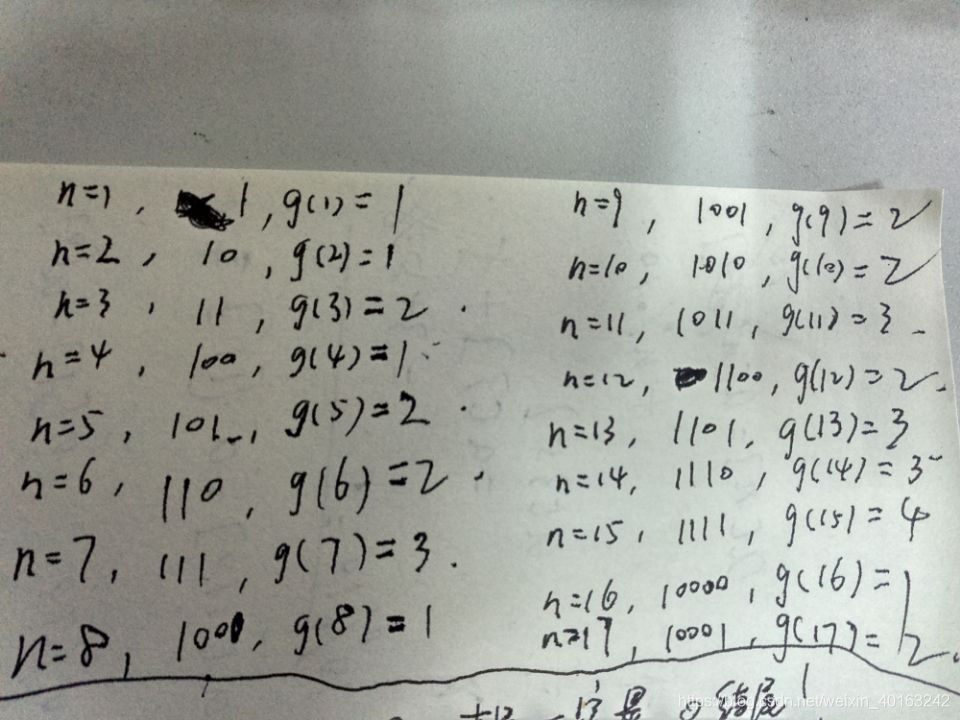 n=1, 1, g(1)=1
n=2, 10, g(2)=1
n=3, 11, g(3)=2.
n=4, 100, g(4)=1
n=5, 101, g(5)=2.
n=6, 110, g(6)=2.
n=7, 111, g(7)=3.
n=8, 1000, g(8)=1
n=9, 1001, g(9)=2
n=10, 1010, g(10)=2
n=11, 1011, g(11)=3
n=12, 1100, g(12)=2.
n=13, 1101, g(13)=3
n=14, 1110, g(14)=3
n=15, 1111, g(15)=4
n=16, 10000, g(16)=1
n=17, 10001, g(17)=2.
https://blog.csdn.net/weixin_40163242